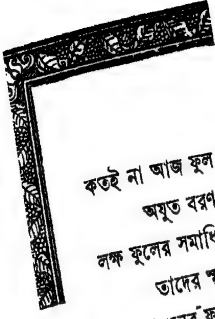 কতই না আজ ফুল
অযুত বরণ
লক্ষ ফুলের সমাধি
তাদের